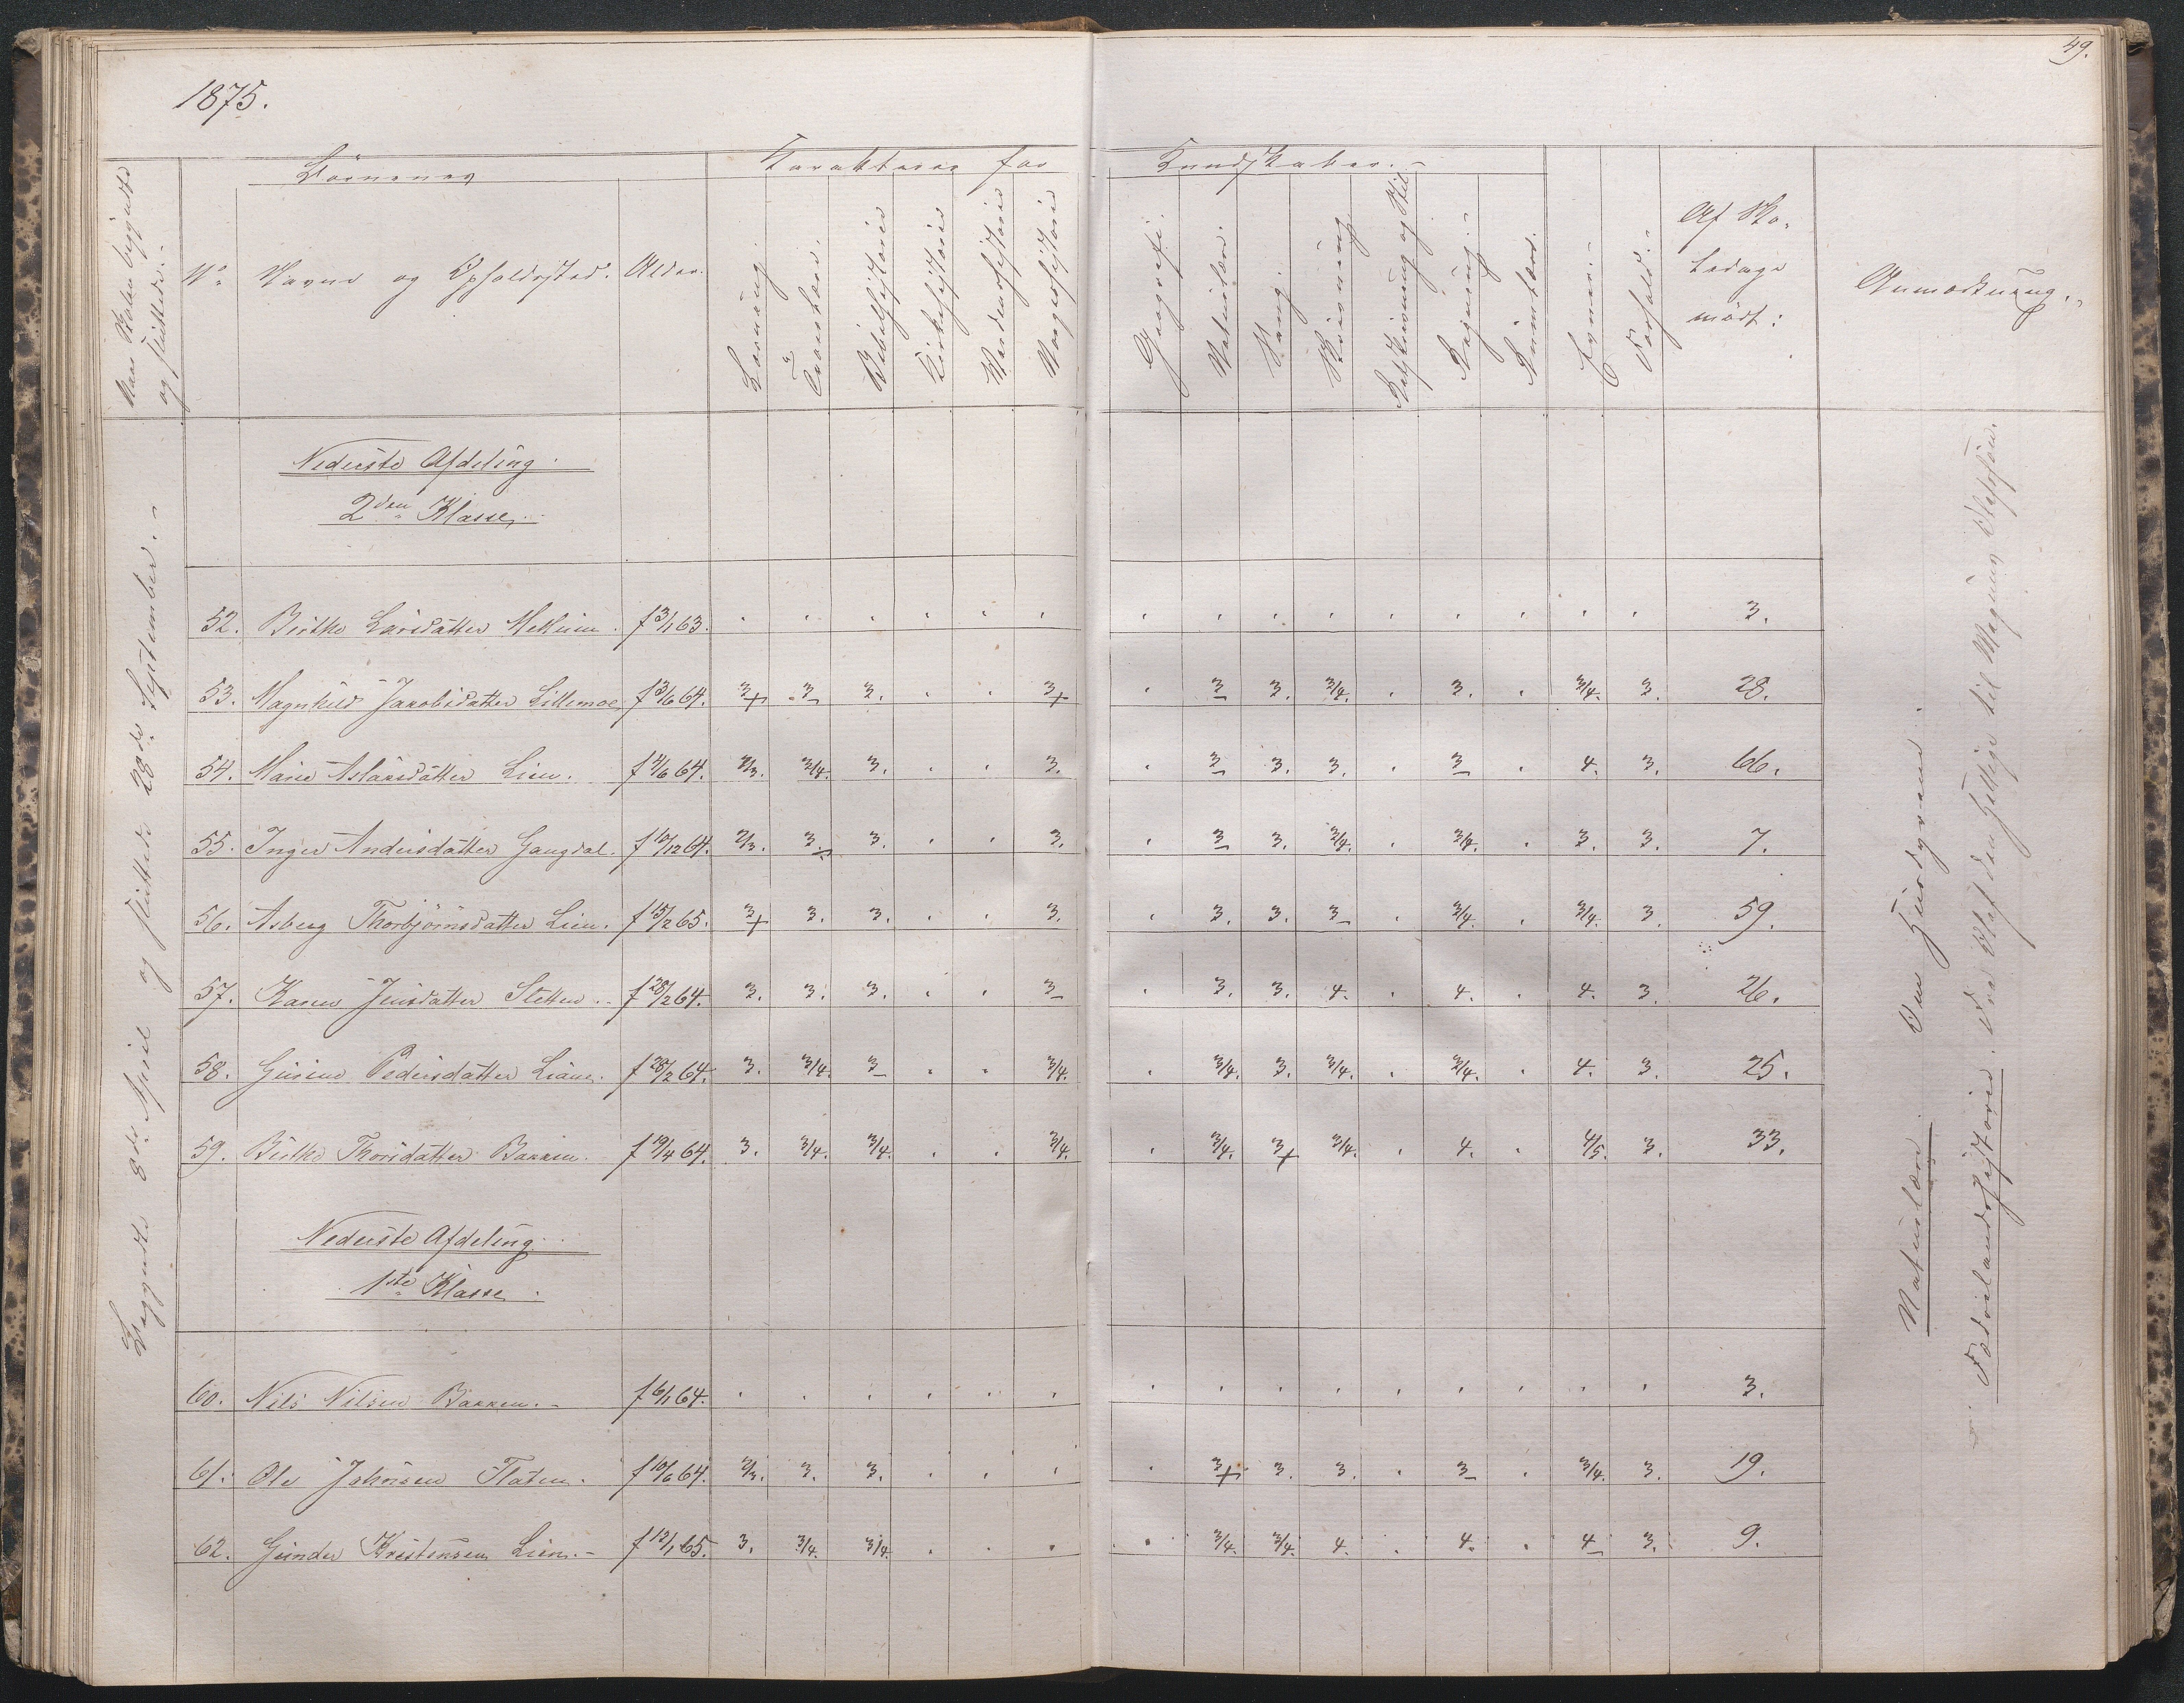 49.
1875.
Naar Skolen begyndte
og sluttede.
Börnenes
Karakterer for
Kundskaber.
No
Navne og Opholdssted.
Alder.
Læsning
Troeslære.
Bibelhistorie
Kirkehistorie
Verdenshistorie
Norgeshistorie
Geografi.
Naturlære.
Sang.
Skrivning
Retskrivning og Stil
Regning.
Evner.
Forhold.
Af Sko-
ledage
mödt:
Anmærkning.
Begyndte 8de April og sluttede 28de September.
Nederste Afdeling.
2den Klasse.
52. Birthe Larsdatter Metveien. f 3/1 63. 3.
53. Magnhild Jakobsdatter Lillemoe f 13/6 64. 3+ 3 3. 3+ 3 3. 3/4. 3. 3/4. 3. 28.
54. Marie Aslaksdatter Lien. f 4/6 64. 2/3. 3/4. 3. 3. 3 3. 3. 3 4. 3. 66.
55. Inger Andersdatter Gaugdal. f 10/12 64. 2/3. 3. 3. 3. 3 3. 3/4. 3/4. 3. 3. 7.
56. Asberg Thorbjörnsdatter Lien. f 15/2 65. 3+ 3. 3. 3. 3. 3. 3 3/4. 3/4. 3. 59.
57. Karen Jensdatter Sletten. f 28/2 64. 3. 3. 3. 3 3. 3. 4. 4. 4. 3. 26.
58. Gurine Pedersdatter Liane. f 28/2 64. 3. 3/4. 3 3/4. 3/4. 3. 3/4. 3/4. 4. 3. 25.
59. Birthe Thorsdatter Bakken. f 19/4 64. 3. 3/4. 3/4. 3/4. 3/4. 3+ 3/4. 4. 4/5. 3. 33.
Nederste Afdeling.
1ste Klasse.
60. Nils Nilsen Bakken. f 6/1 64. 3.
61. Ole Johnsen Flaten. f 10/6 64. 2/3. 3. 3. 3+ 3. 3. 3 3/4. 3. 19.
62. Gunder Kristensen Lien. f 12/1 65. 3. 3/4. 3/4. 3/4. 3/4. 4. 4. 4 3. 9.
Naturlære. Om Husdyrene.
Fædrelandshistorie. Fra Olaf den Hellige til Magnus Olafsön.